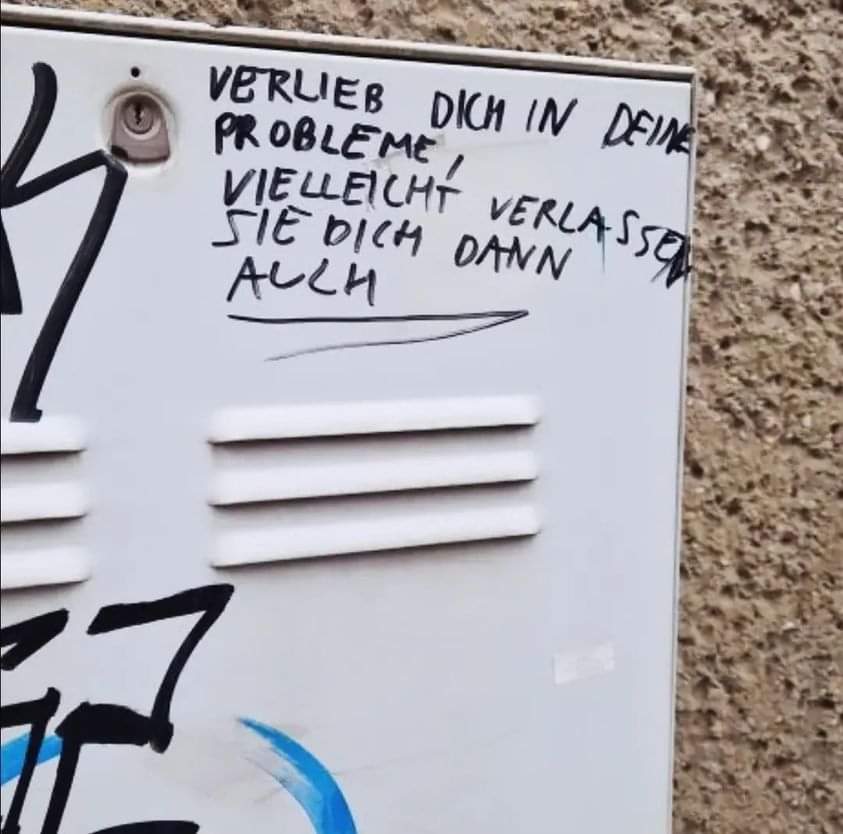 VERLIEB DICH IN DEINE
PROBLEME,
VIELLEICHT VERLASSEN
SIE DICH DANN
AUCH